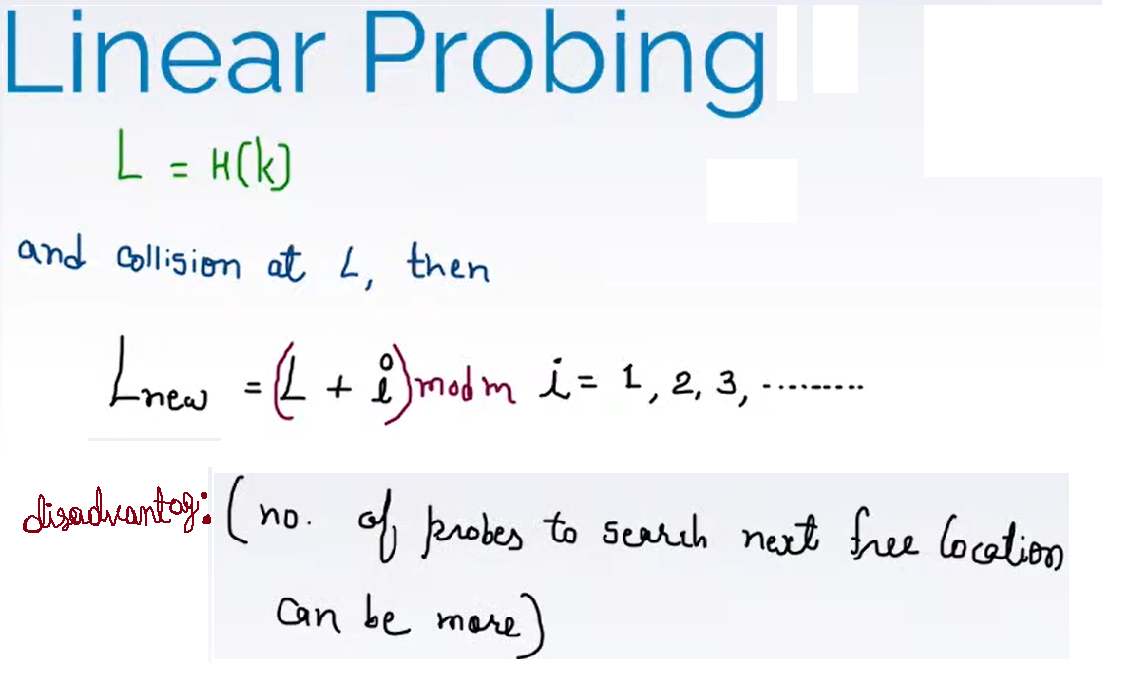 Linear Probing
L = H(k)
and collision at L, then
Lnew = (L + i) mod m i = 1, 2, 3, .........
disadvantag: (no. of probes to search next free location
can be more)